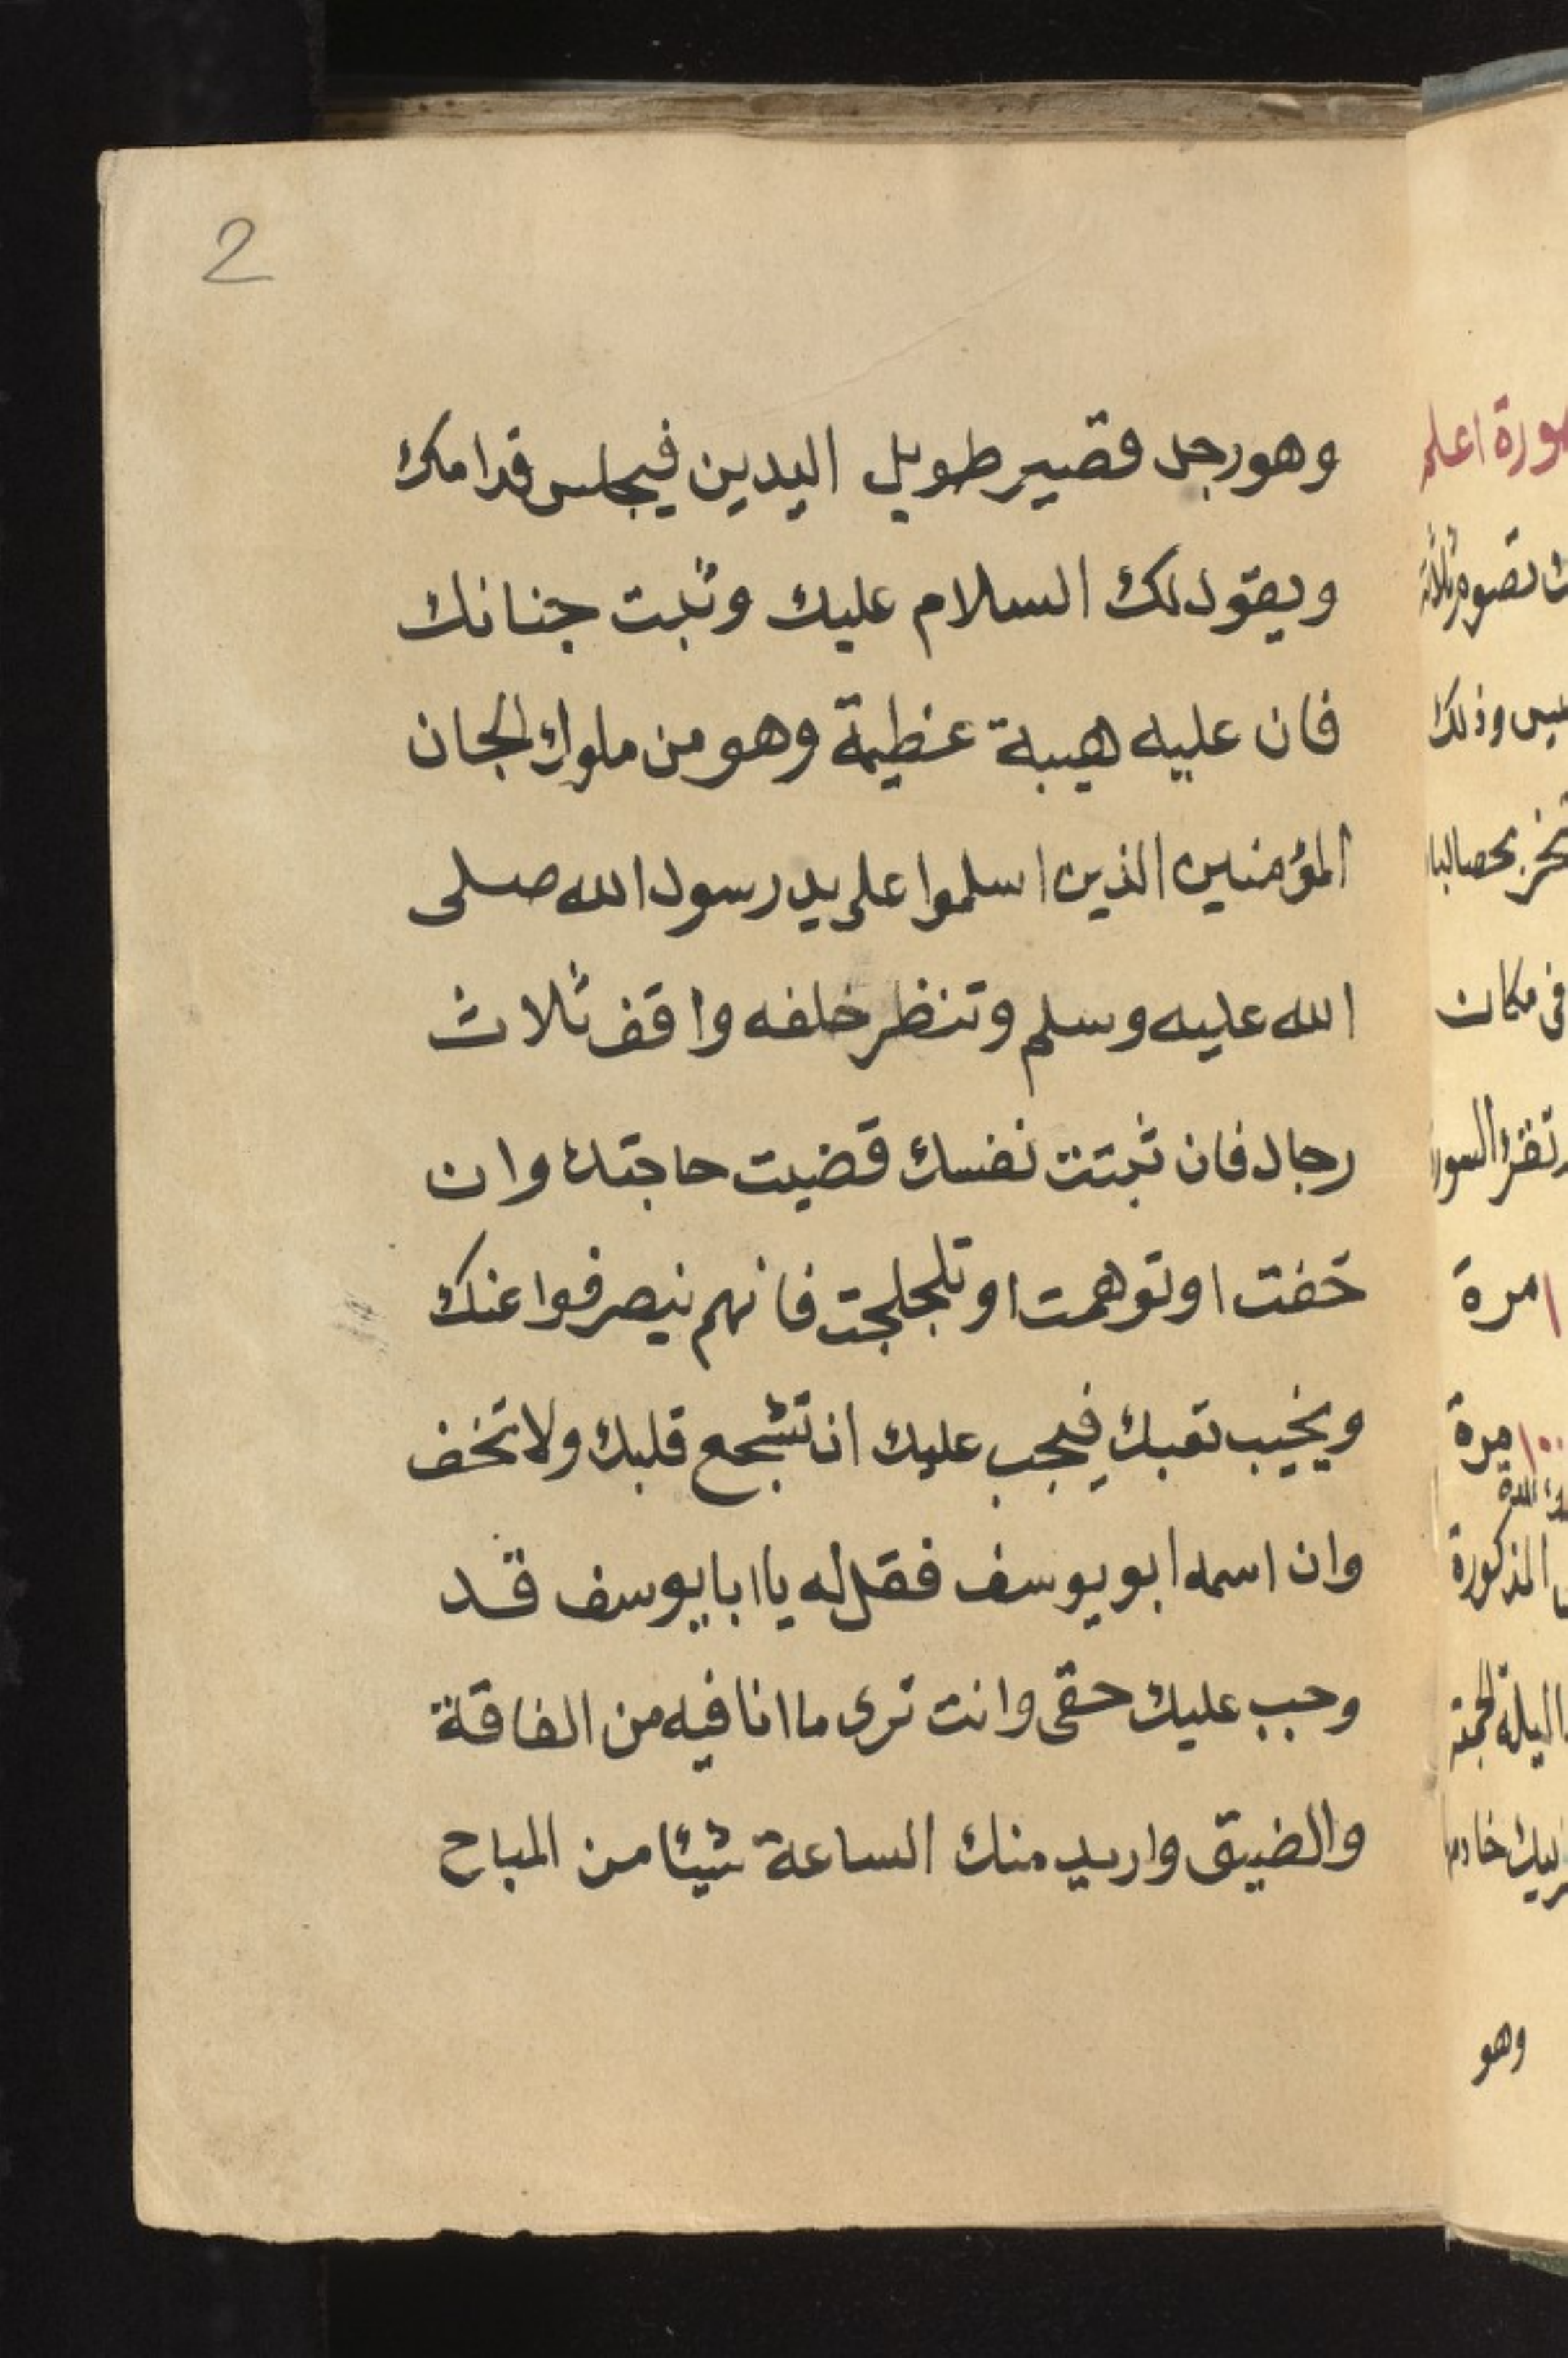 2
وهو رجل قصير طويل اليدين فيجلس قدامك
ويقول لك السلام عليك وثبت جنانك
فان عليه هيبة عظيمة وهو من ملوك الجان
المؤمنين الذين اسلموا على يد رسول الله صلى
الله عليه وسلم وتنظر خلفه واقف ثلاث
رجال فان ثبتت نفسك قضيت حاجتك وان
خفت او توهمت او تلجلجت فانهم ينصرفوا عنك
ويخيب تعبك فيجب عليك ان تشجع قلبك ولا تخف
وان اسمه ابو يوسف فقل له يا ابا يوسف قد
وجب عليك حقى وانت ترى ما انا فيه من الفاقة
والضيق واريد منك الساعة شيئا من المباح
اعلم
وذلك
فى مكان
مرة
١٠٠ مرة
المذكورة
وهو